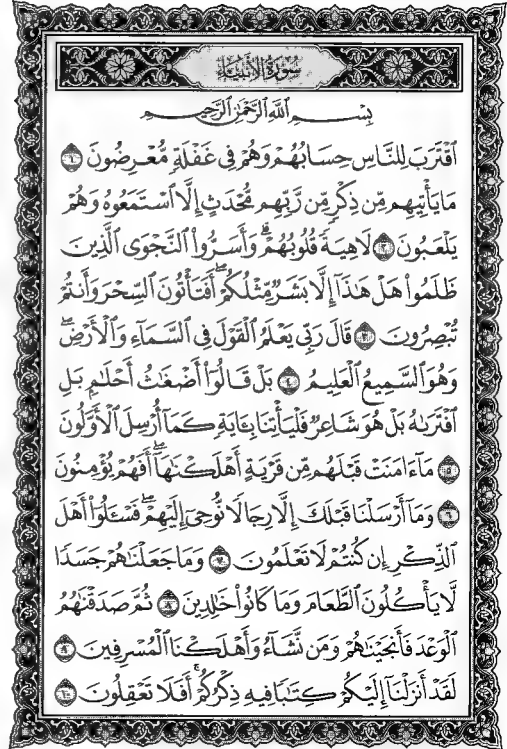 سُورَةُ الأَنبِيَاءِ
بِسْمِ اللَّهِ الرَّحْمَٰنِ الرَّحِيمِ
ٱقْتَرَبَ لِلنَّاسِ حِسَابُهُمْ وَهُمْ فِى غَفْلَةٍ مُّعْرِضُونَ ١
مَا يَأْتِيهِم مِّن ذِكْرٍ مِّن رَّبِّهِم مُّحْدَثٍ إِلَّا ٱسْتَمَعُوهُ وَهُمْ
يَلْعَبُونَ ٢ لَاهِيَةً قُلُوبُهُمْ ۗ وَأَسَرُّوا۟ ٱلنَّجْوَى ٱلَّذِينَ
ظَلَمُوا۟ هَلْ هَٰذَآ إِلَّا بَشَرٌ مِّثْلُكُمْ ۖ أَفَتَأْتُونَ ٱلسِّحْرَ وَأَنتُمْ
تُبْصِرُونَ ٣ قَالَ رَبِّى يَعْلَمُ ٱلْقَوْلَ فِى ٱلسَّمَآءِ وَٱلْأَرْضِ ۖ
وَهُوَ ٱلسَّمِيعُ ٱلْعَلِيمُ ٤ بَلْ قَالُوٓا۟ أَضْغَٰثُ أَحْلَٰمٍۭ بَلِ
ٱفْتَرَىٰهُ بَلْ هُوَ شَاعِرٌ فَلْيَأْتِنَا بِـَٔايَةٍ كَمَآ أُرْسِلَ ٱلْأَوَّلُونَ
٥ مَآ ءَامَنَتْ قَبْلَهُم مِّن قَرْيَةٍ أَهْلَكْنَٰهَآ ۖ أَفَهُمْ يُؤْمِنُونَ
٦ وَمَآ أَرْسَلْنَا قَبْلَكَ إِلَّا رِجَالًا نُّوحِىٓ إِلَيْهِمْ ۖ فَسْـَٔلُوٓا۟ أَهْلَ
ٱلذِّكْرِ إِن كُنتُمْ لَا تَعْلَمُونَ ٧ وَمَا جَعَلْنَٰهُمْ جَسَدًا
لَّا يَأْكُلُونَ ٱلطَّعَامَ وَمَا كَانُوا۟ خَٰلِدِينَ ٨ ثُمَّ صَدَقْنَٰهُمُ
ٱلْوَعْدَ فَأَنجَيْنَٰهُمْ وَمَن نَّشَآءُ وَأَهْلَكْنَا ٱلْمُسْرِفِينَ ٩
لَقَدْ أَنزَلْنَآ إِلَيْكُمْ كِتَٰبًا فِيهِ ذِكْرُكُمْ ۖ أَفَلَا تَعْقِلُونَ ١٠